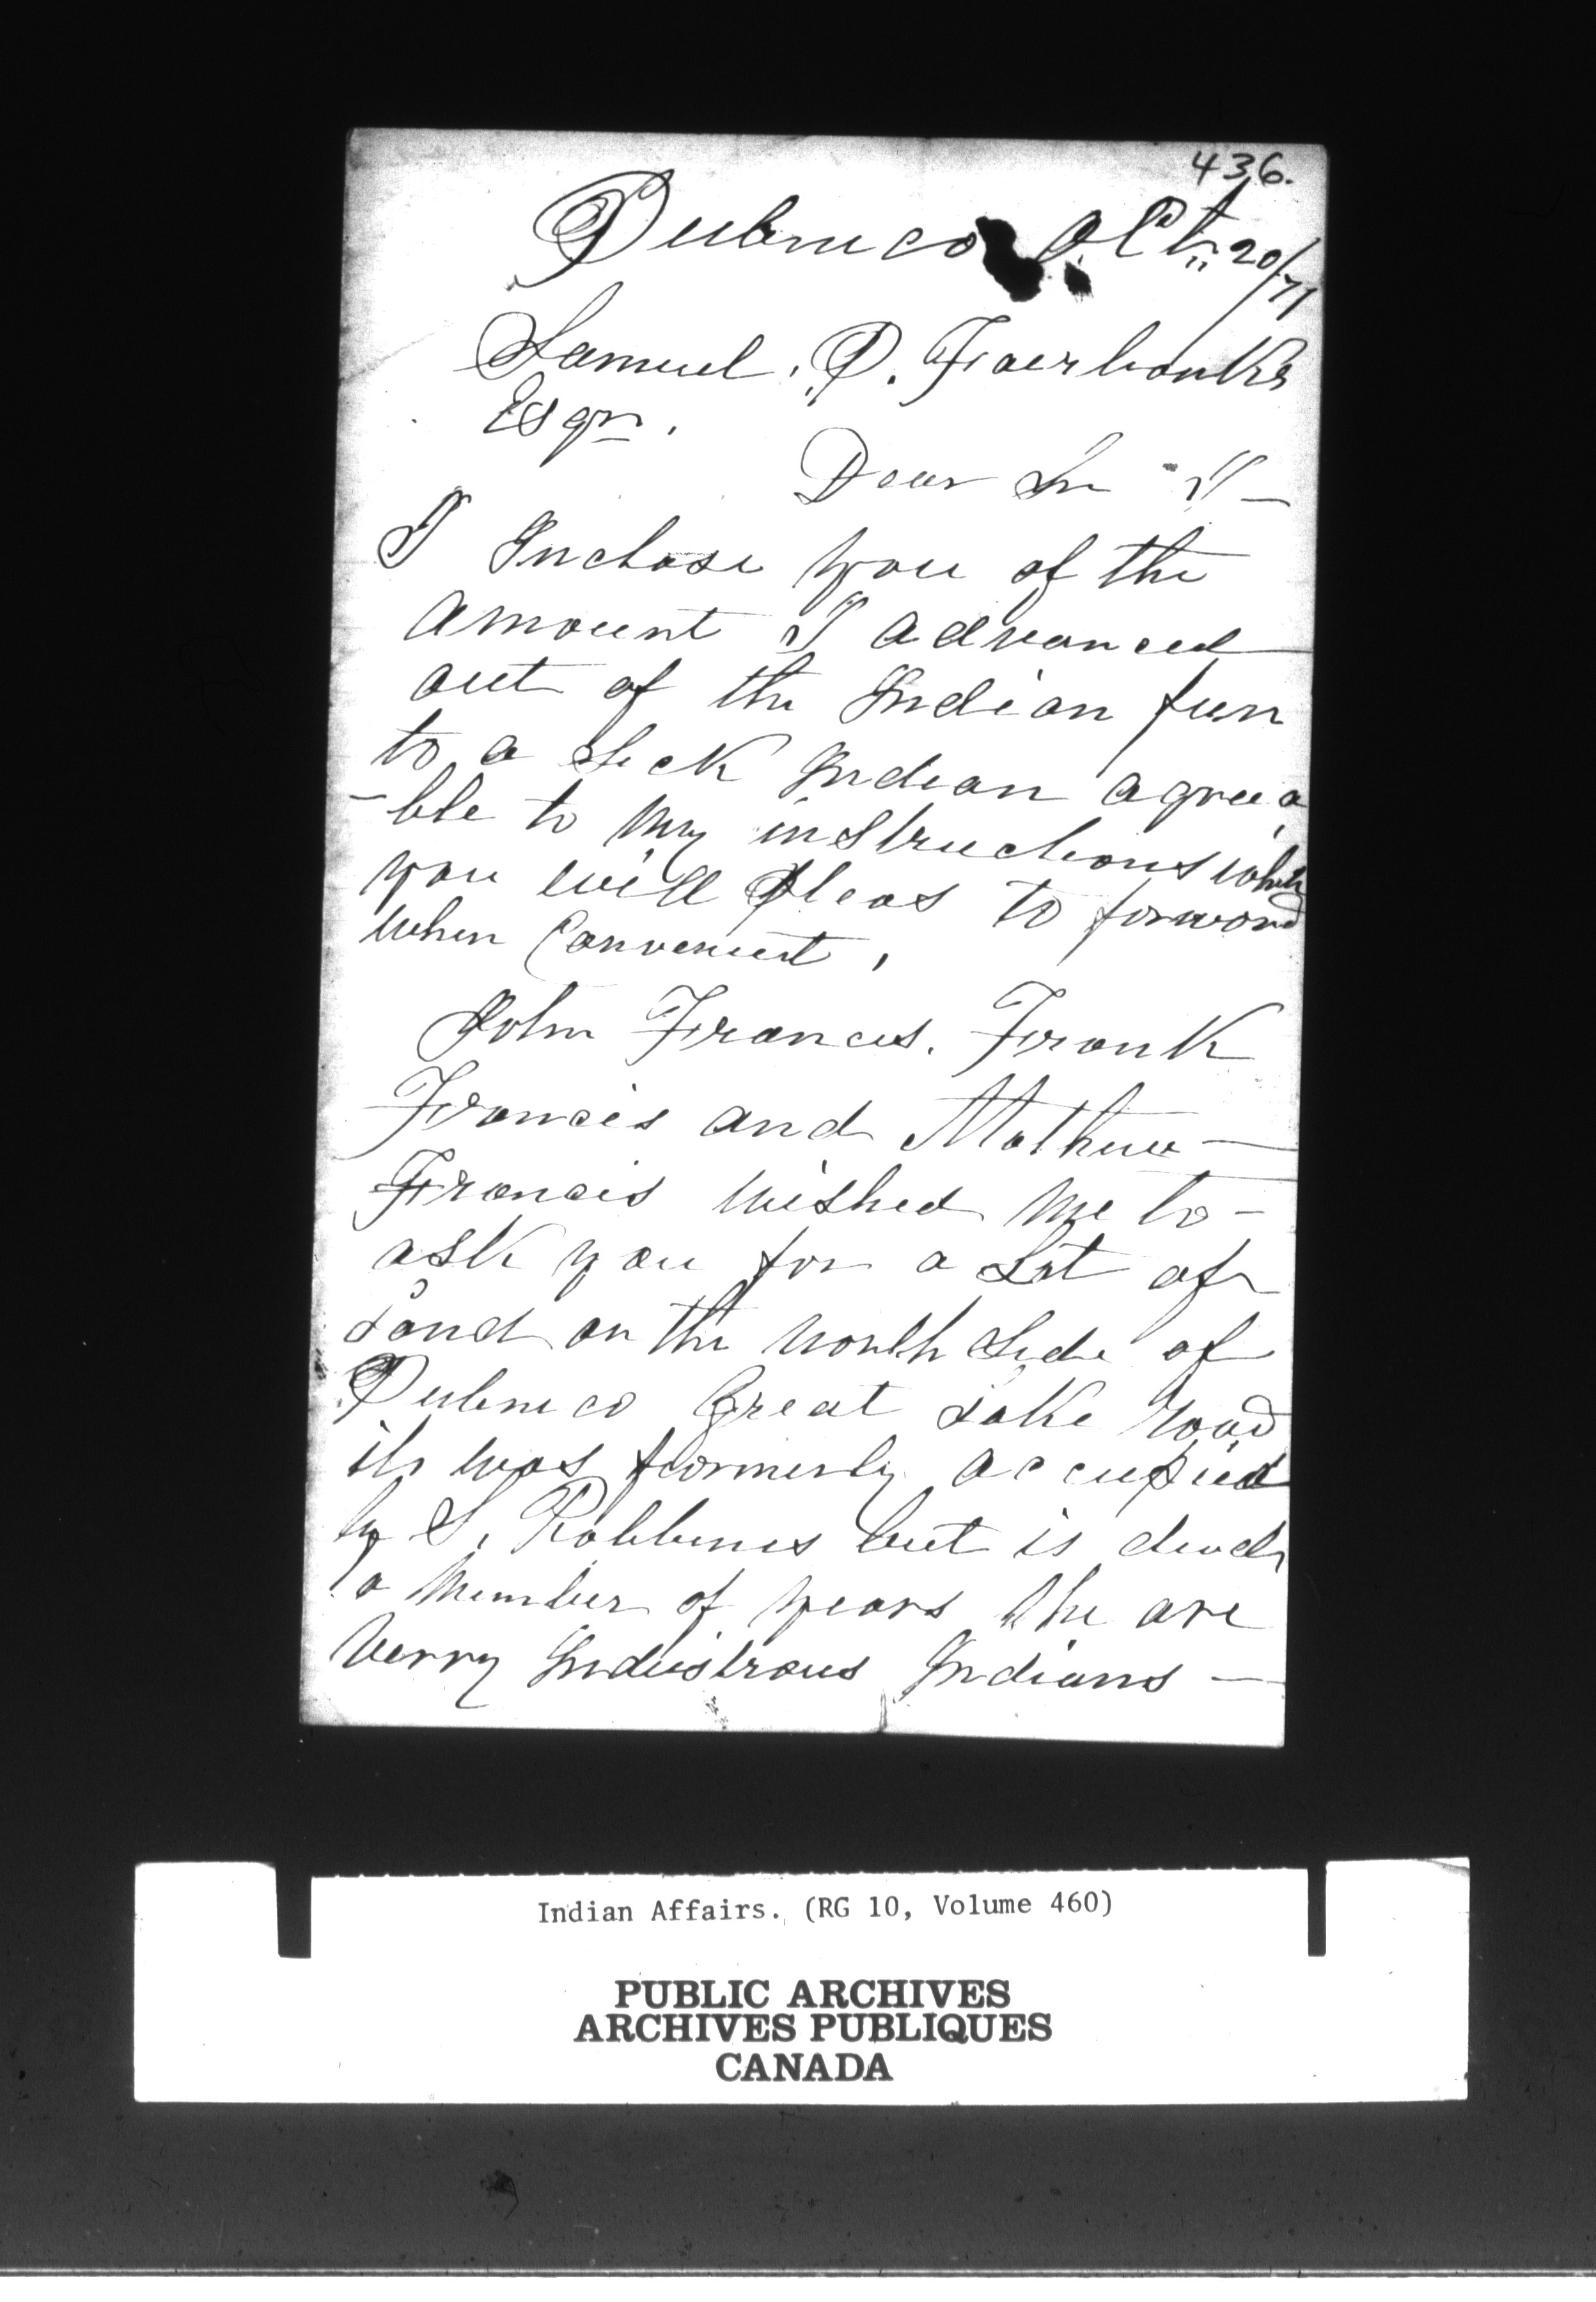 436.
Pubnico Oct. 20/71
Samuel. P. Fairbanks
Esqr.
Dear Sir
I Inclose you of the
amount I advanced
out of the Indian fun
to a Sick Indian agreea
-ble to my instructions which
you will Pleas to forward
when Convenient,
John Francis. Frank
Francis and Mathew
Francis wished me to
ask you for a Lot of
Land on the north Side of
Pubnico Great Lake road
it was formerly accupied
by S. Robbines but is dead
a number of years the are
verry Industrous Indians
Indian Affairs. (RG 10, Volume 460)
PUBLIC ARCHIVES
ARCHIVES PUBLIQUES
CANADA